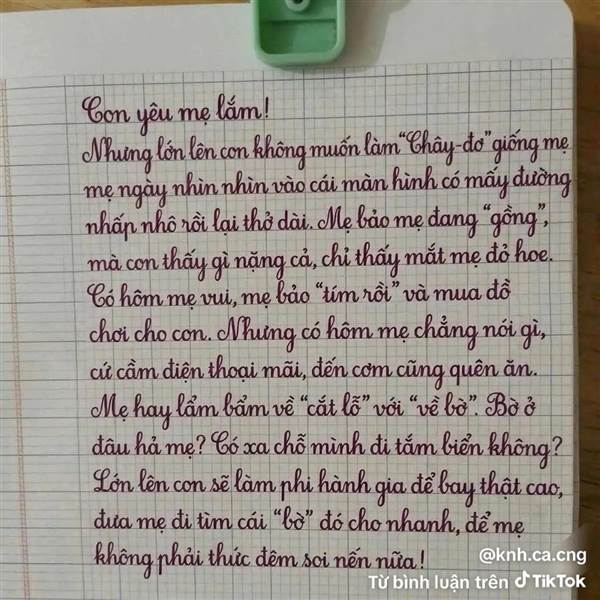 Con yêu mẹ lắm!
Nhưng lớn lên con không muốn làm "Chây-đơ" giống mẹ
mẹ ngày nhìn nhìn vào cái màn hình có mấy đường
nhấp nhô rồi lại thở dài. Mẹ bảo mẹ đang "gồng",
mà con thấy gì nặng cả, chỉ thấy mắt mẹ đỏ hoe.
Có hôm mẹ vui, mẹ bảo "tím rồi" và mua đồ
chơi cho con. Nhưng có hôm mẹ chẳng nói gì,
cứ cầm điện thoại mãi, đến cơm cũng quên ăn.
Mẹ hay lẩm bẩm về "cắt lỗ" với "về bờ". Bờ ở
đâu hả mẹ? Có xa chỗ mình đi tắm biển không?
Lớn lên con sẽ làm phi hành gia để bay thật cao,
đưa mẹ đi tìm cái "bờ" đó cho nhanh, để mẹ
không phải thức đêm soi nến nữa!
@knh.ca.cng
Từ bình luận trên TikTok